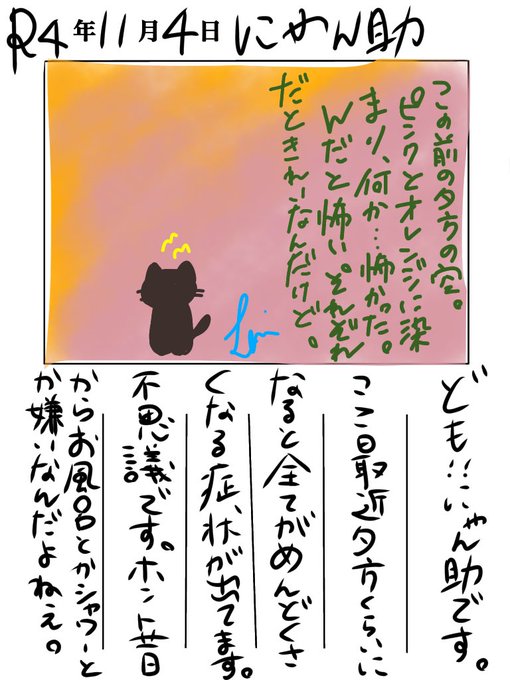 R4年11月4日 にゃん助
この前の夕方の空。
ピンクとオレンジに染
まり、何か…怖かった。
んだと怖い。それぞれ
だときれーなんだけど。
ども!!にゃん助です。
ここ最近夕方くらいに
なると全てがめんどくさ
くなる症状が出てます。
不思議です。ホント昔
からお風呂とかシャワーと
か嫌いなんだよねぇ。